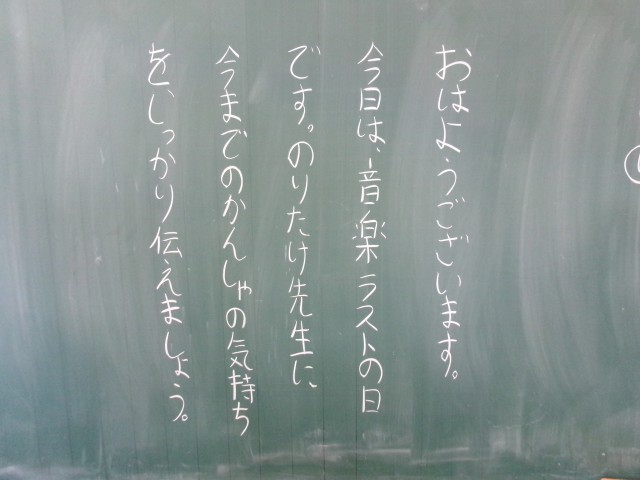 おはようございます。
今日は、音楽ラストの日
です。のりたけ先生に、
今までのかんしゃの気持ち
を、しっかり伝えましょう。